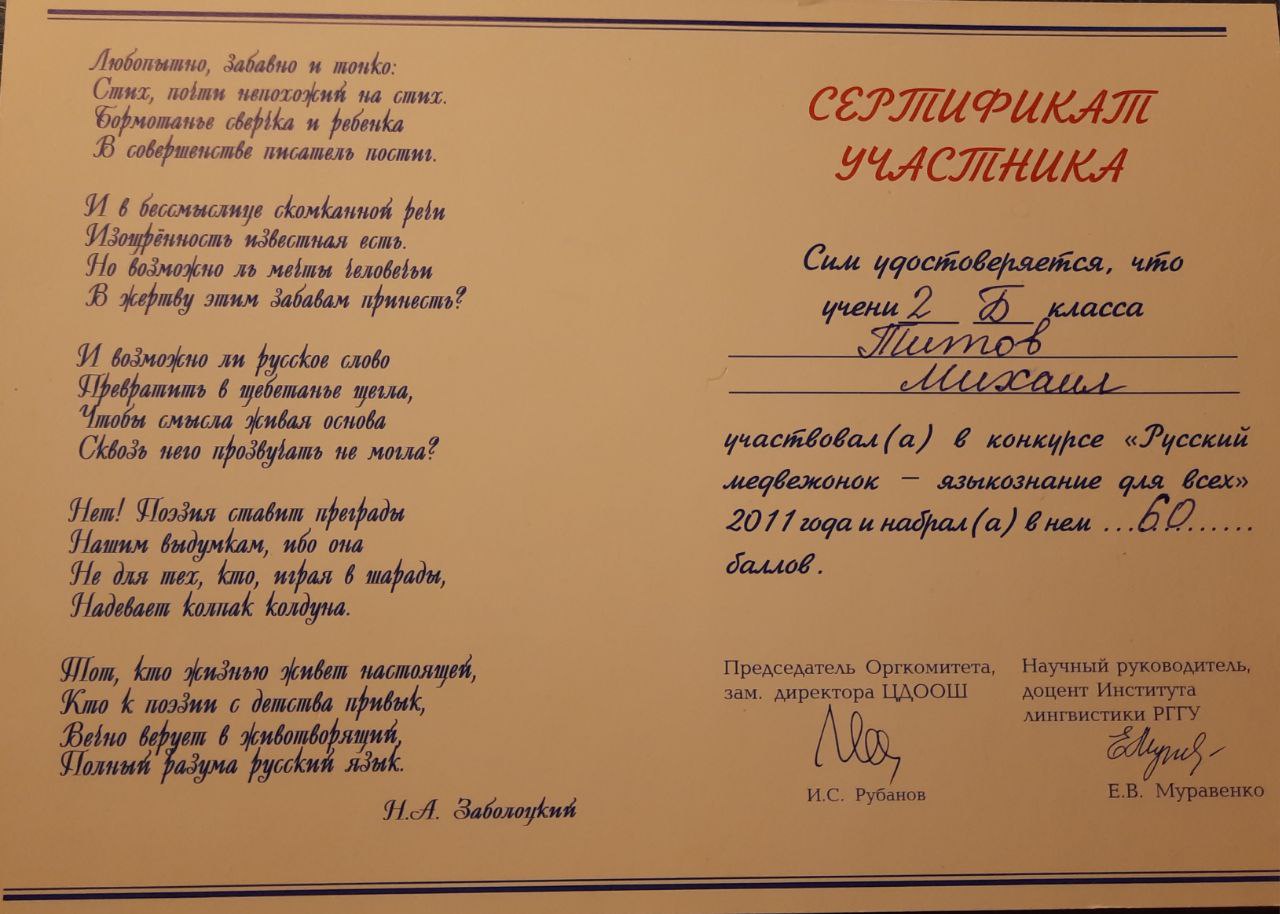 Любопытно, забавно и тонко:
Стих, почти непохожий на стих.
Бормотанье сверчка и ребенка
В совершенстве писатель постиг.
И в бессмыслице скомканной речи
Изощрённость известная есть.
Но возможно ль мечты человечьи
В жертву этим забавам принесть?
И возможно ли русское слово
Превратить в щебетанье щегла,
Чтобы смысла живая основа
Сквозь него прозвучать не могла?
Нет! Поэзия ставит преграды
Нашим выдумкам, ибо она
Не для тех, кто, играя в шарады,
Надевает колпак колдуна.
Тот, кто жизнью живет настоящей,
Кто к поэзии с детства привык,
Вечно верует в животворящий,
Полный разума русский язык.
Н.А. Заболоцкий
СЕРТИФИКАТ
УЧАСТНИКА
Сим удостоверяется, что
учени 2 Б класса
Титов
Михаил
участвовал(а) в конкурсе «Русский
медвежонок – языкознание для всех»
2011 года и набрал(а) в нем ...60.......
баллов.
Председатель Оргкомитета,
зам. директора ЦДООШ
И.С. Рубанов
Научный руководитель,
доцент Института
лингвистики РГГУ
Е.В. Муравенко